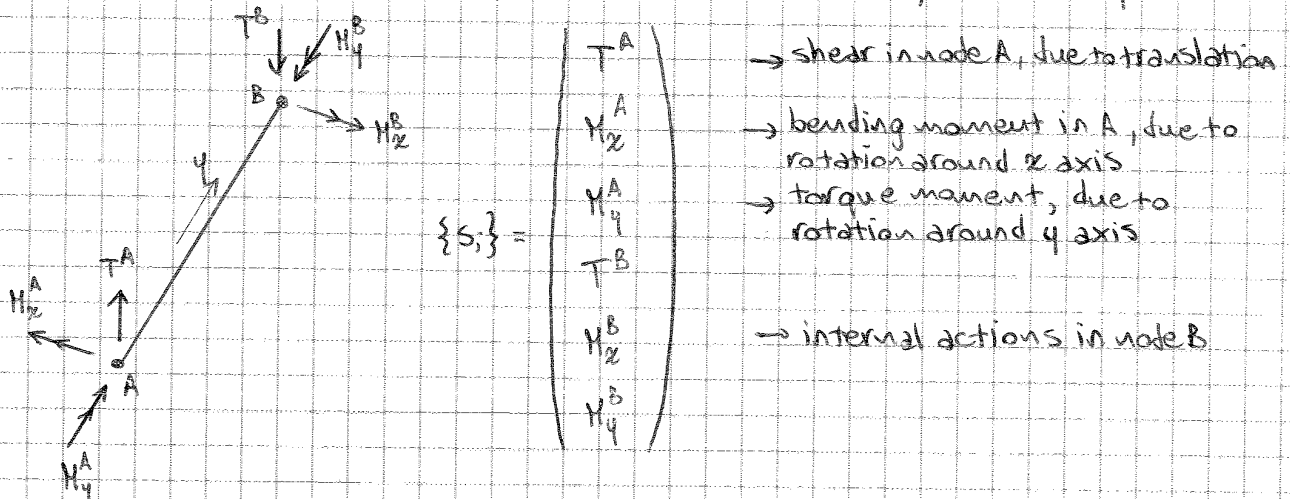 T^B
M_y^B
B
M_x^B
y
T^A
M_x^A
A
M_y^A
{S_i} =
T^A → shear in node A, due to translation
M_x^A → bending moment in A, due to
rotation around x axis
M_y^A → torque moment, due to
rotation around y axis
T^B
M_x^B → internal actions in node B
M_y^B